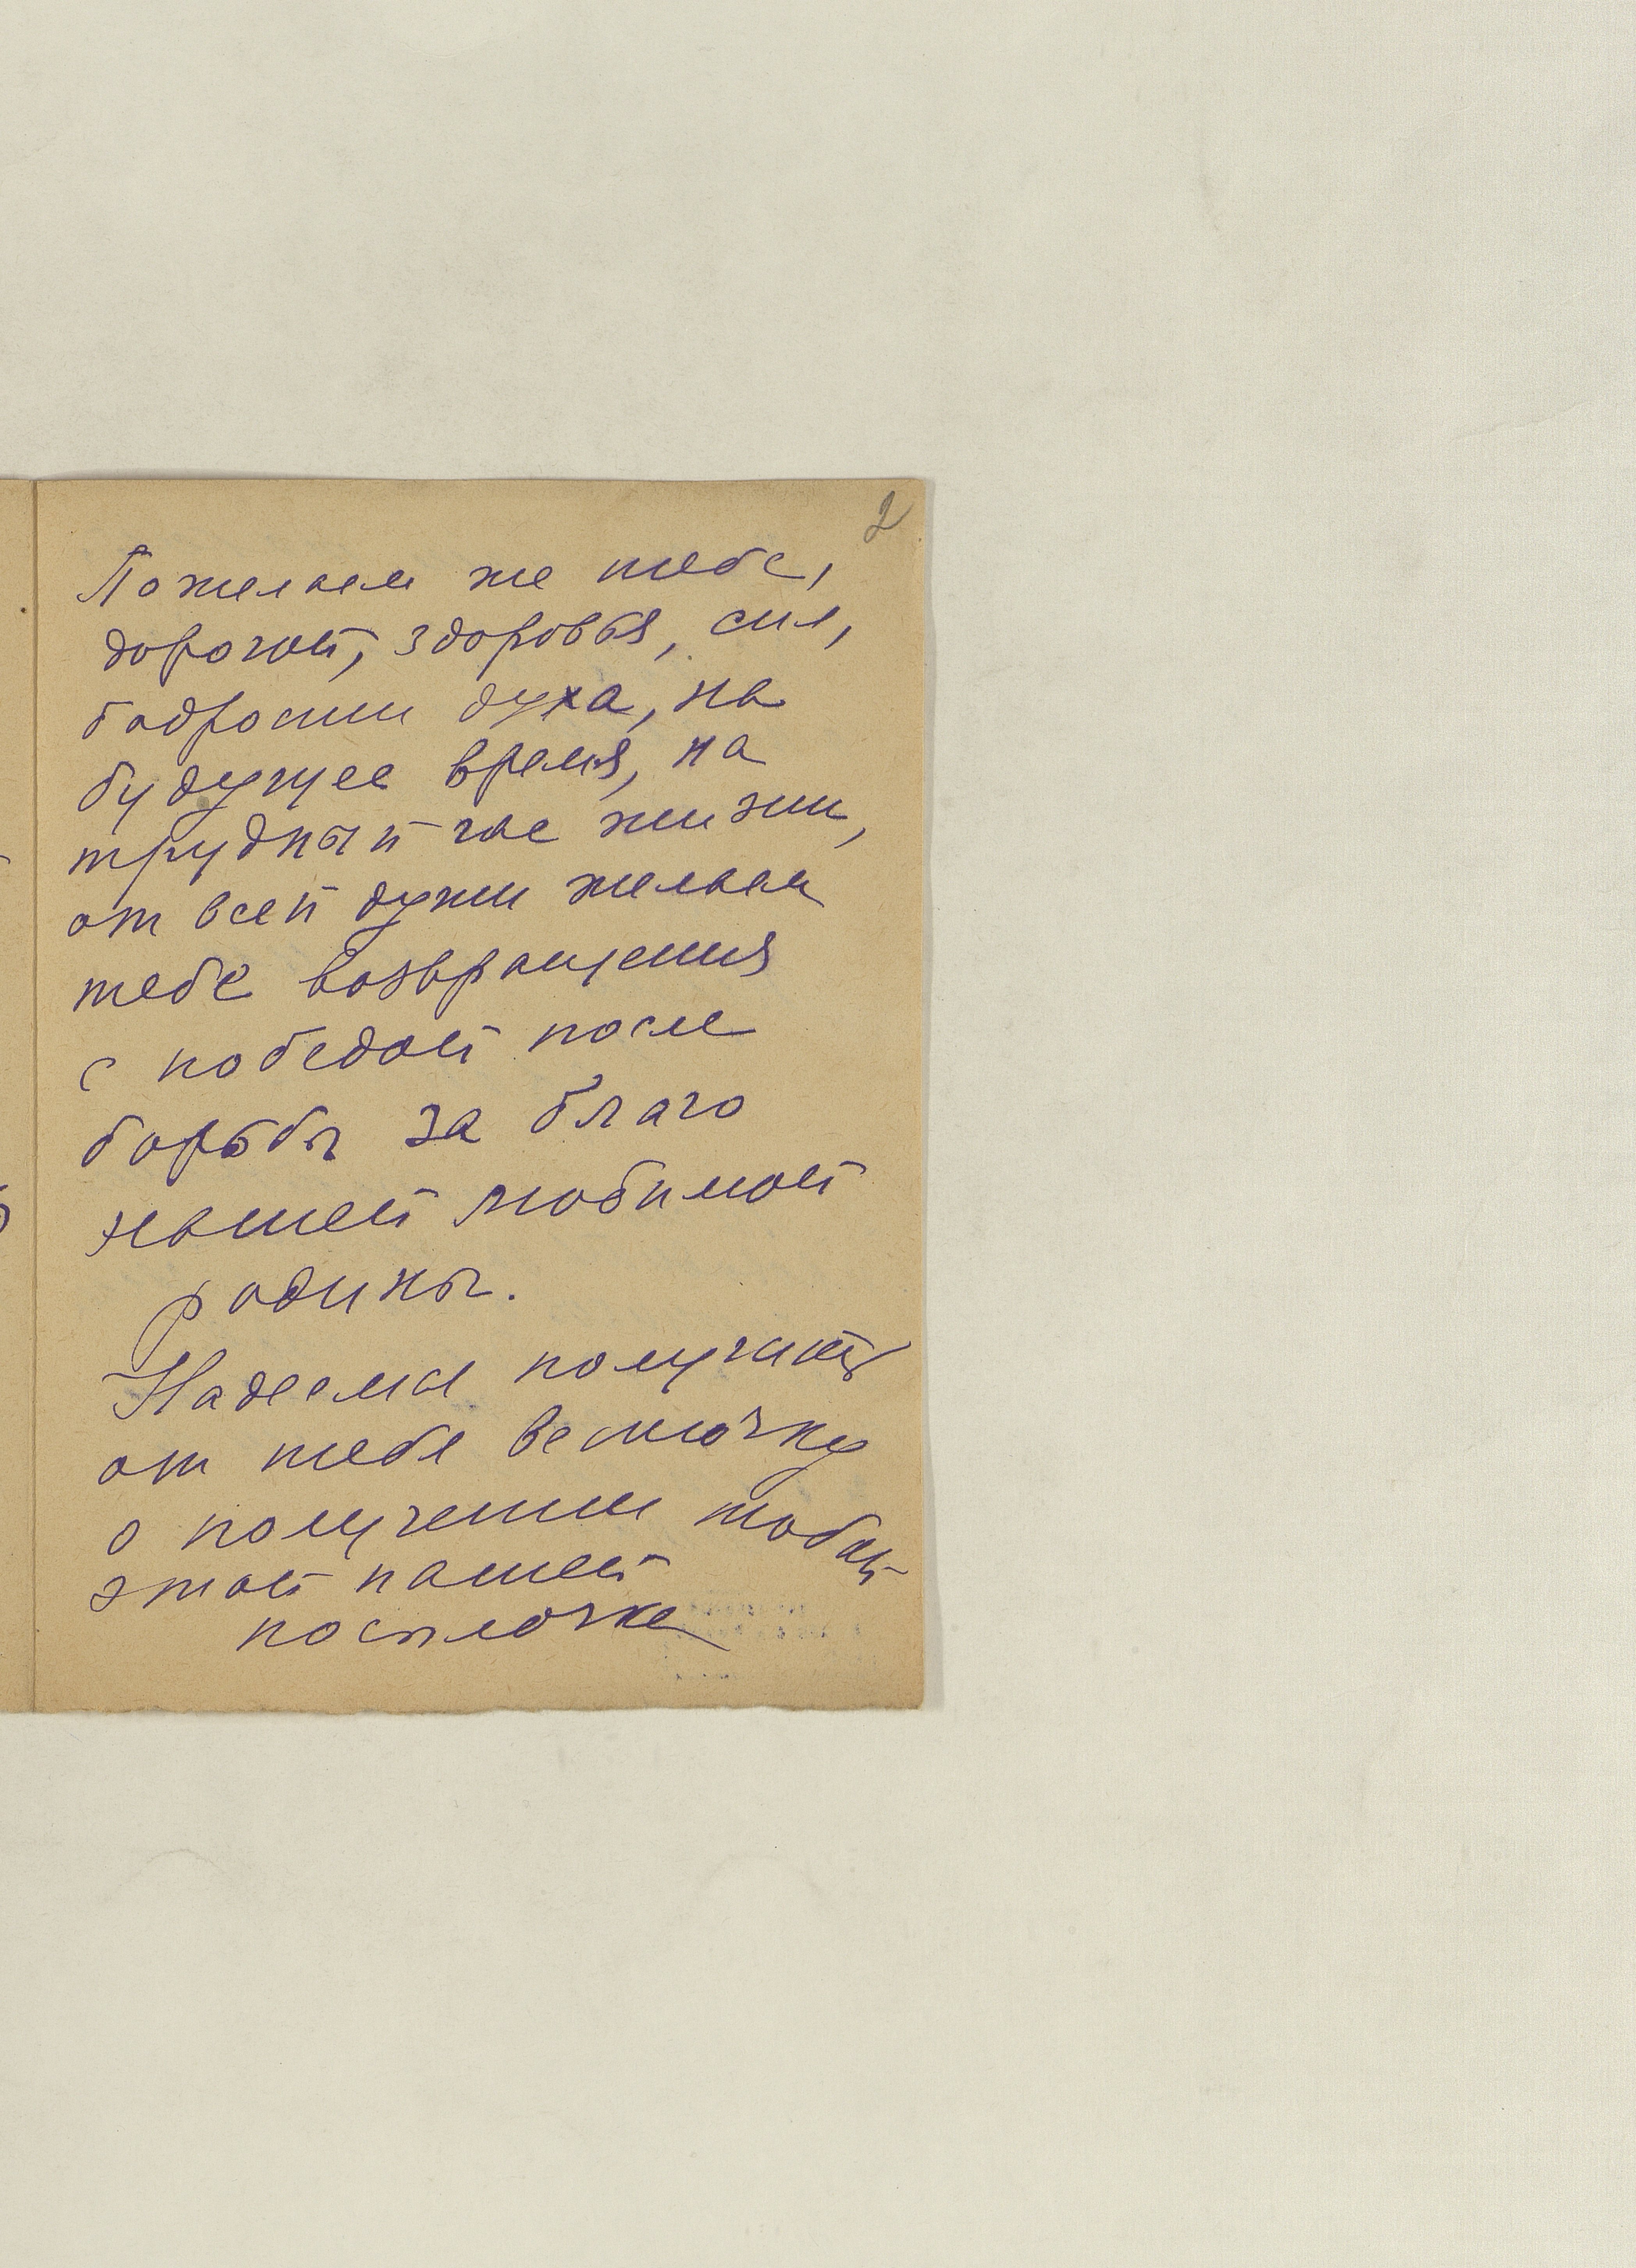 2
Пожелаем же тебе,
дорогой, здоровья, сил,
бодрости духа, на
будущее время, на
трудный час жизни,
от всей души желаем
тебе возвращения
с победой после
борьбы за благо
нашей любимой
родины.
Надеемся получить
от тебя весточку
о получении тобой
этой нашей
посылочке